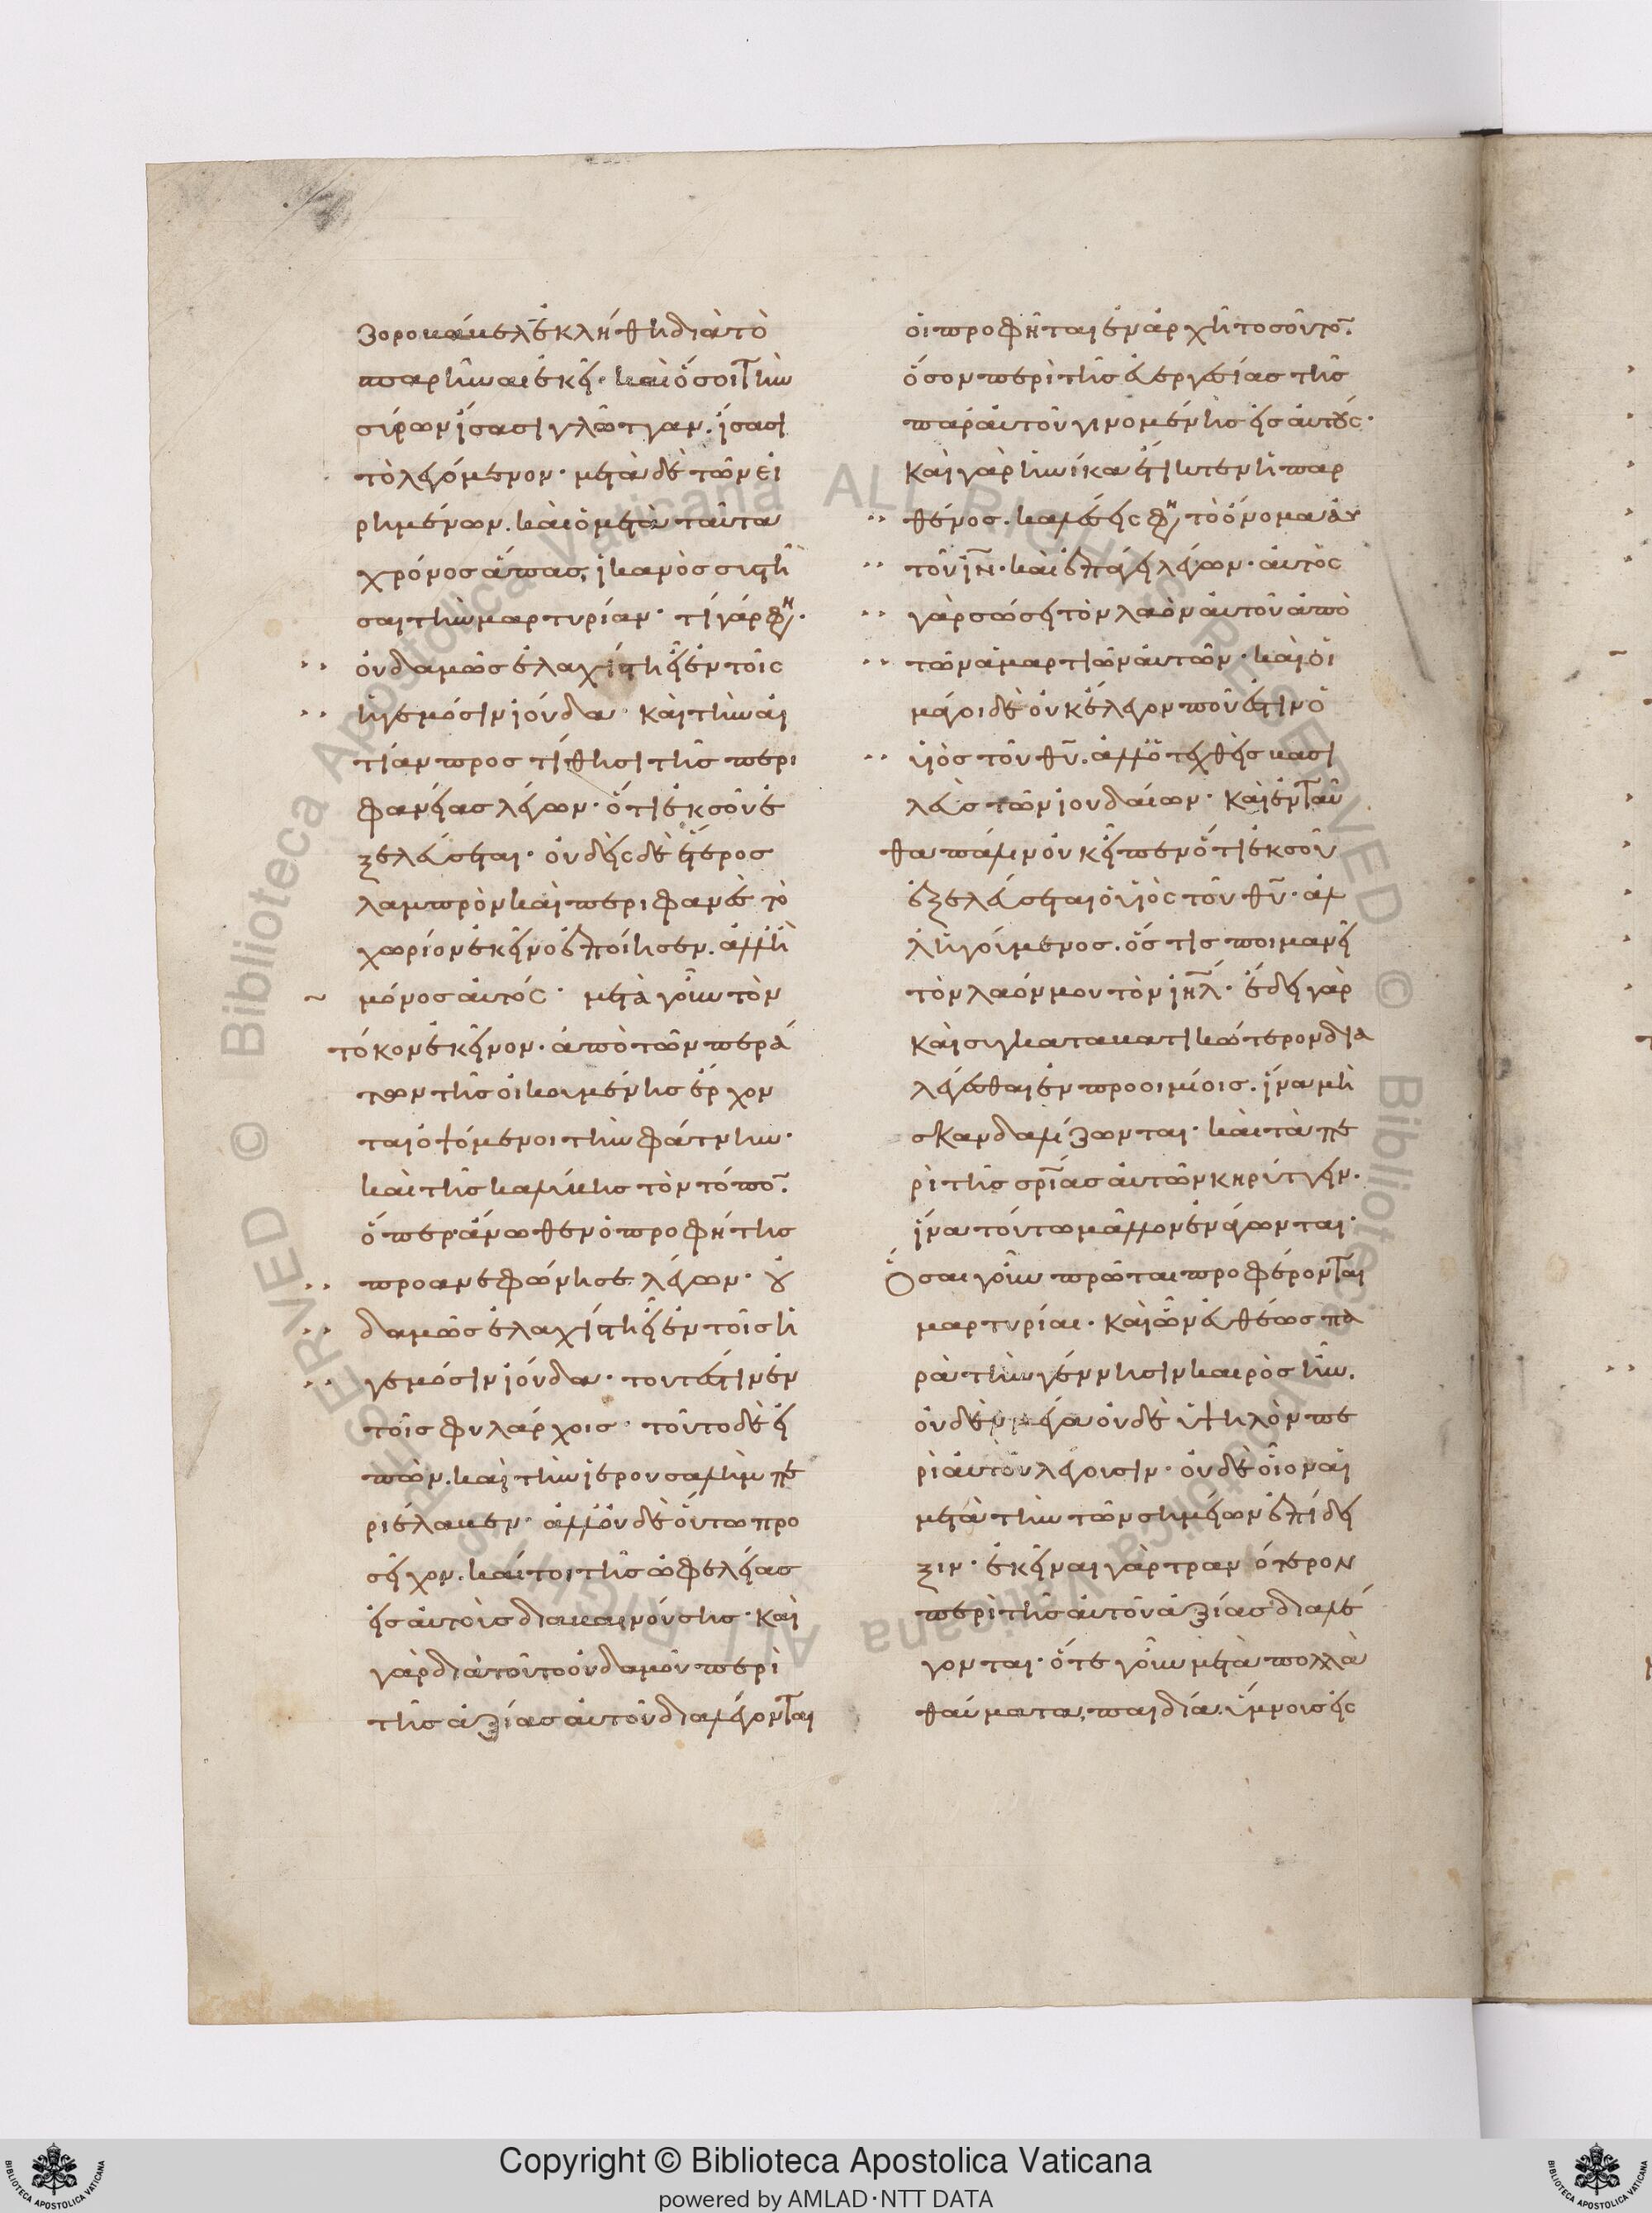 ζοροβάβελ ἐκλήθη διὰ τὸ
σπαρῆναι ἐκεῖ· καὶ ὅσοι τὴν
σύρων ἴσασι γλῶτταν. ἴσασι
τὸ λεγόμενον· μετὰ δὲ τῶν εἰ
ρημένων. καὶ ὁ μετὰ ταῦτα
χρόνος ἅπας, ἱκανὸς συστῆ
σαι τὴν μαρτυρίαν· τί γάρ φη·
οὐδαμῶς ἐλαχίστη εἶ ἐν τοῖς
ἡγεμόσιν ἰούδα· καὶ τὴν αἰ
τίαν προστίθησι τῆς περι
φανείας λέγων· ὅτι ἐκ σοῦ ἐ
ξελεύσεται· οὐδεὶς δὲ ἕτερος
λαμπρὸν καὶ περιφανὲς τὸ
χωρίον ἐκεῖνο ἐποίησεν. ἀλλ' ἢ
μόνος αὐτός· μετὰ γοῦν τὸν
τόκον ἐκεῖνον· ἀπὸ τῶν περά
των τῆς οἰκουμένης ἔρχον
ται ὀψόμενοι τὴν φάτνην·
καὶ τῆς καλύβης τὸν τόπον.
ὅπερ ἄνωθεν ὁ προφήτης
προανεφώνησε λέγων· οὐ
δαμῶς ἐλαχίστη εἶ ἐν τοῖς ἡ
γεμόσιν ἰούδα· τουτέστιν ἐν
τοῖς φυλάρχοις· τοῦτο δὲ εἰ
πὼν. καὶ τὴν ἱερουσαλὴμ πε
ριέλαβεν· ἀλλ' οὐδὲ οὕτω προ
σεῖχον. καίτοι τῆς ὠφελείας
εἰς αὐτοὺς διαβαινούσης· καὶ
γὰρ διὰ τοῦτο οὐδαμοῦ περὶ
τῆς ἀξίας αὐτοῦ διαλέγονται
οἱ προφῆται ἐν ἀρχῆ τοσοῦτον.
ὅσον περὶ τῆς εὐεργεσίας τῆς
παρ' αὐτοῦ γινομένης εἰς αὐτούς·
καὶ γὰρ ἡνίκα ἔτικτεν ἡ παρ
θένος. καλέσεις φη τὸ ὄνομα αὐ
τοῦ ιν· καὶ ἐπάγει λέγων· αὐτὸς
γὰρ σώσει τὸν λαὸν αὐτοῦ ἀπὸ
τῶν ἁμαρτιῶν αὐτῶν· καὶ οἱ
μάγοι δὲ οὐκ ἔλεγον ποῦ ἐστιν ὁ
υἱὸς τοῦ θυ. ἀλλ' ὁ τεχθεὶς βασι
λεὺς τῶν ἰουδαίων· καὶ ἐνταῦ
θα πάλιν οὐκ εἶπεν ὅτι ἐκ σοῦ
ἐξελεύσεται ὁ υἱὸς τοῦ θυ· ἀλ
λ' ἡγούμενος. ὅστις ποιμανεῖ
τὸν λαόν μου τὸν ιηλ· ἔδει γὰρ
καὶ συγκαταβατικώτερον δια
λέγεσθαι ἐν προοιμίοις. ἵνα μὴ
σκανδαλίζωνται· καὶ τὰ πε
ρὶ τῆς σρίας αὐτῶν κηρύττειν.
ἵνα τούτω μᾶλλον ἐνάγωνται·
Ὅσαι γοῦν πρῶται προφέρονται
μαρτυρίαι. καὶ ὧν εὐθέως πα
ρὰ τὴν γέννησιν καιρὸς ἦν.
οὐδὲν μέγα οὐδὲ ὑψηλὸν πε
ρὶ αὐτοῦ λέγουσιν· οὐδὲ οἷον αἱ
μετὰ τὴν τῶν σημείων ἐπίδει
ξιν· ἐκεῖναι γὰρ τρανότερον
περὶ τῆς αὐτοῦ ἀξίας διαλέ
γονται· ὅτε γοῦν μετὰ πολλὰ
θαύματα, παιδία ὕμνους εἰς
Copyright © Biblioteca Apostolica Vaticana
powered by AMLAD·NTT DATA